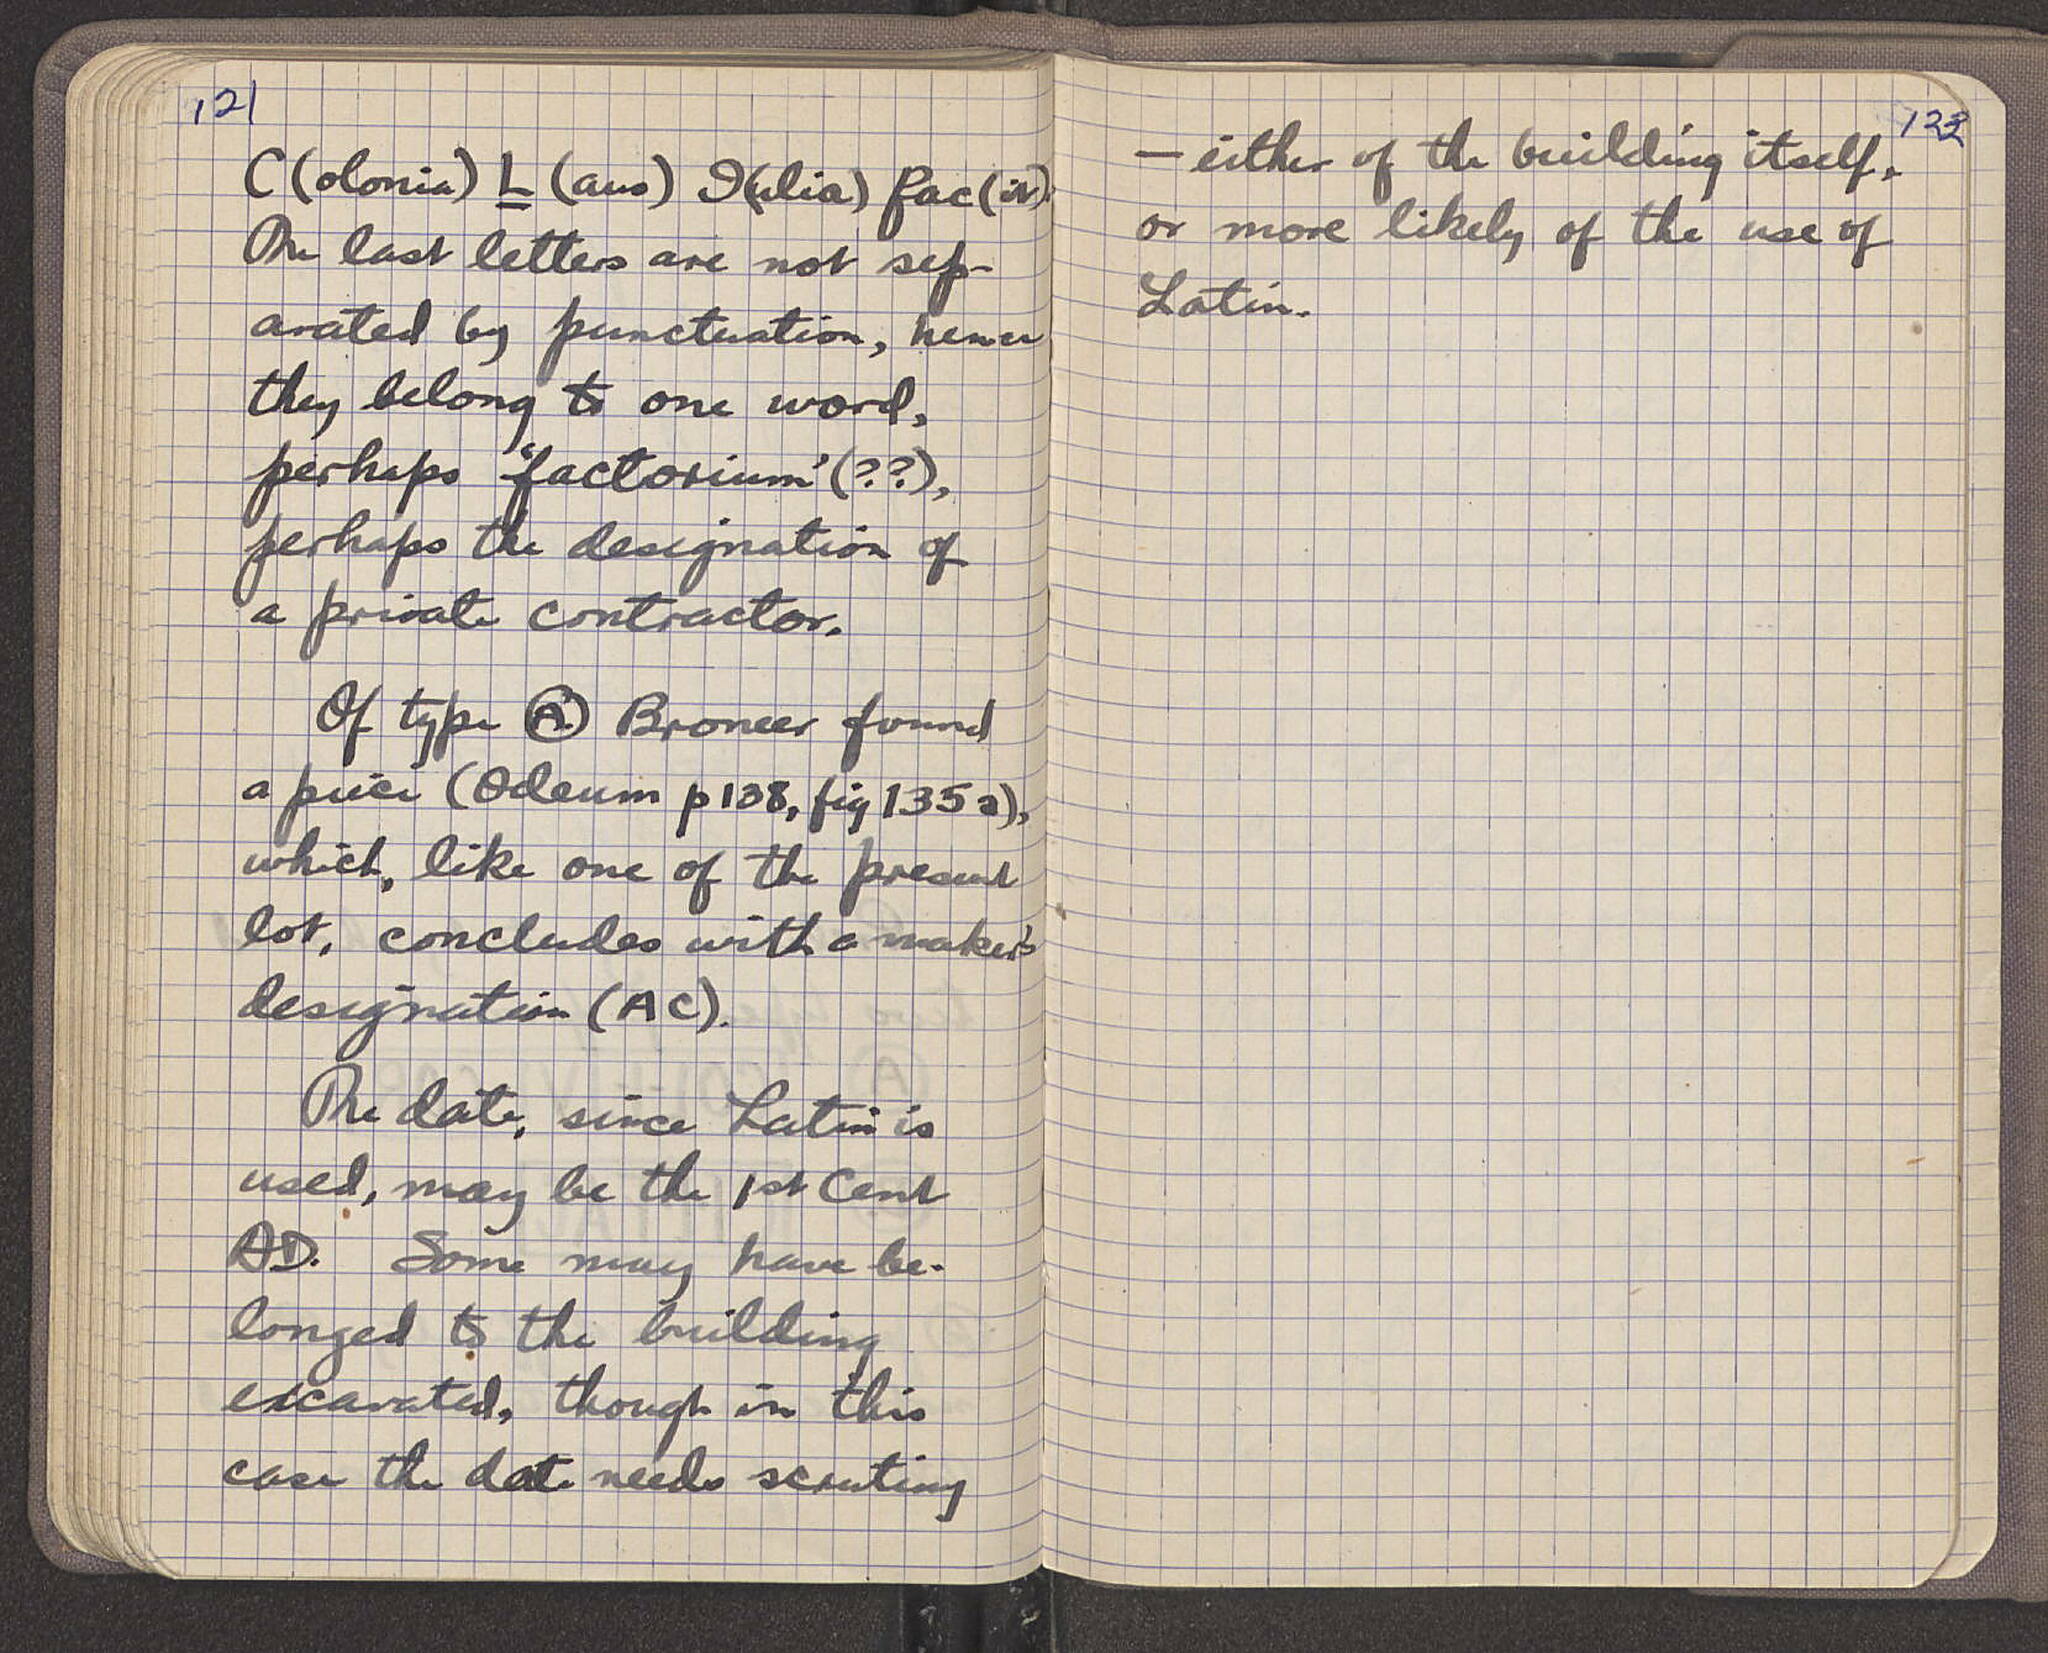 121
C(olonia) L(aus) I(ulia) fac(it).
The last letters are not sep-
arated by punctuation, hence
they belong to one word,
perhaps 'factorium' (??),
perhaps the designation of
a private contractor.
Of type Ⓐ Broneer found
a piece (Odeum p 138, fig 135a),
which, like one of the present
lot, concludes with a maker's
designation (AC).
The date, since Latin is
used, may be the 1st Cent
AD. Some may have be-
longed to the building
excavated, though in this
case the date needs scrutiny
122
— either of the building itself,
or more likely of the use of
Latin.